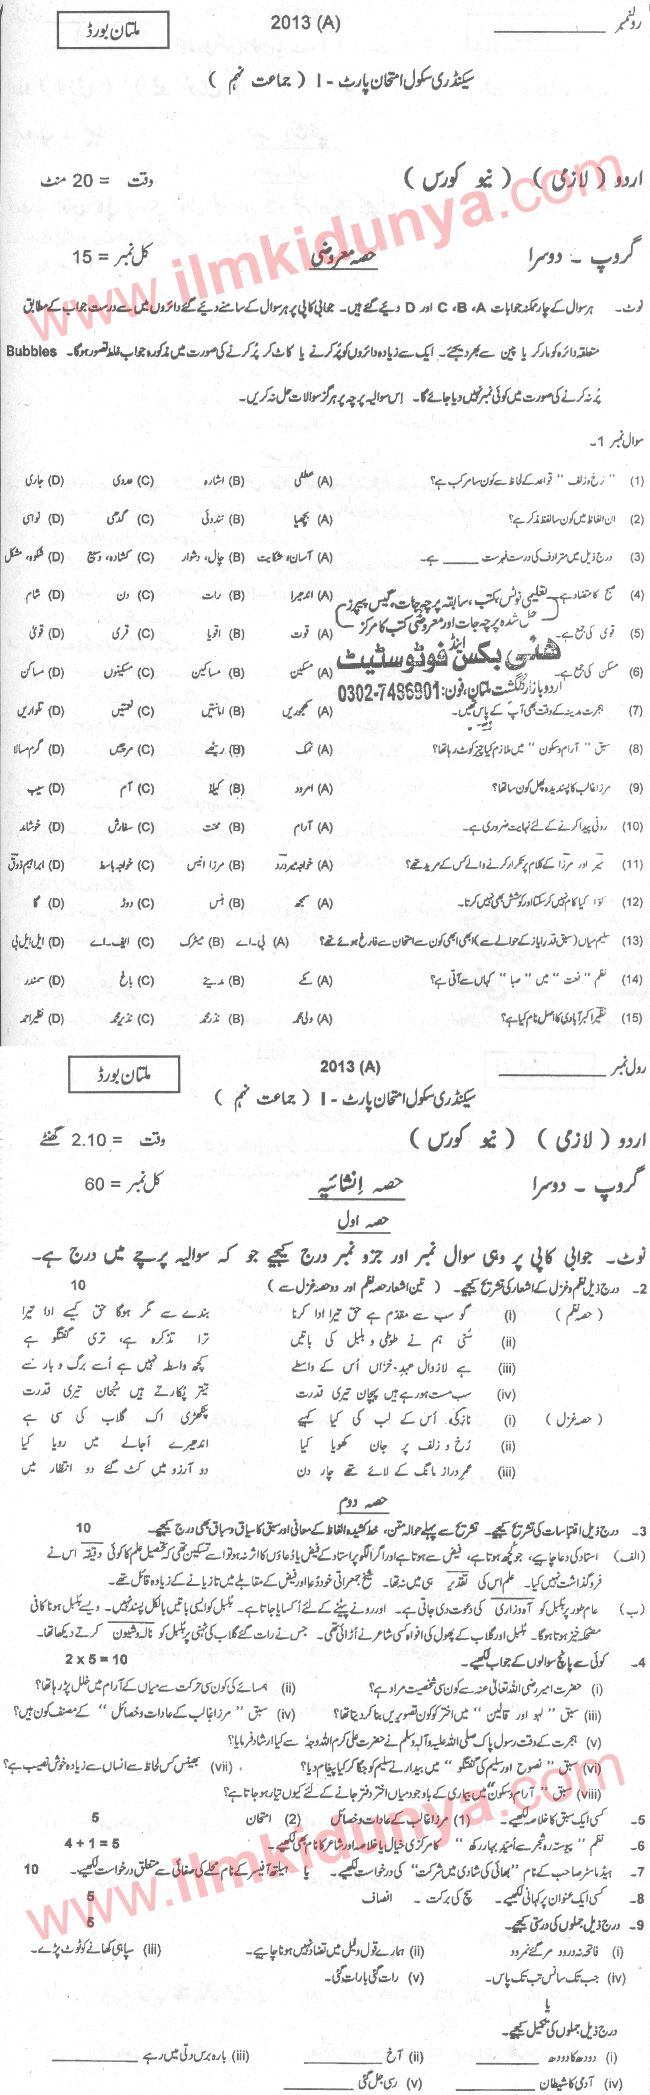 رولنمبر ____________ 2013 (A) ملتان بورڈ
سیکنڈری سکول امتحان پارٹ - I ( جماعت نہم )
اردو ( لازمی ) ( نیو کورس ) وقت = 20 منٹ
گروپ - دوسرا حصہ معروضی کل نمبر = 15
نوٹ - ہر سوال کے چار ممکنہ جوابات A، B، C اور D دیئے گئے ہیں۔ جوابی کاپی پر ہر سوال کے سامنے دیئے گئے دائروں میں سے درست جواب کے مطابق
متعلقہ دائرہ کو مارکر یا پین سے بھر دیجئے۔ ایک سے زیادہ دائروں کو پُر کرنے یا کاٹ کر پُر کرنے کی صورت میں مذکورہ جواب غلط تصور ہوگا۔ Bubbles
پُر نہ کرنے کی صورت میں کوئی نمبر نہیں دیا جائے گا۔ اِس سوالیہ پرچہ پر ہرگز سوالات حل نہ کریں۔
سوال نمبر 1-
(1) "رخ و زلف" قواعد کے لحاظ سے کون سا مرکب ہے؟ (A) عطفی (B) اشارہ (C) عددی (D) جاری
(2) ان الفاظ میں کون سا لفظ مذکر ہے؟ (A) بچھیا (B) نندوئی (C) گدھی (D) نواسی
(3) درج ذیل میں مترادف کی درست فہرست ______ ہے۔ (A) آسان، شکایت (B) چال، دشوار (C) کشادہ، وسیع (D) شکوہ، مشکل
(4) صبح کا متضاد ہے (A) اندھیرا (B) رات (C) دن (D) شام
(5) قوی کی جمع ہے۔ (A) قوت (B) اقویا (C) قری (D) قویٰ
(6) مسکن کی جمع ہے۔ (A) مسکین (B) مساکین (C) مسکینوں (D) مساکن
تعلیمی نوٹس، کتب، سابقہ پرچہ جات، گیس پیپرز
حل شدہ پرچہ جات اور معروضی کتب کا مرکز
ھنی بکس اینڈ فوٹوسٹیٹ
اردو بازار گلگشت ملتان، فون: 0302-7486901
(7) ہجرت مدینہ کے وقت بھی آپؐ کے پاس تھیں۔ (A) کھجوریں (B) امانتیں (C) نعمتیں (D) تلواریں
(8) سبق "آرام و سکون" میں ملازم کیا چیز کوٹ رہا تھا؟ (A) نمک (B) ریٹھے (C) مرچیں (D) گرم مسالا
(9) مرزا غالب کا پسندیدہ پھل کون سا تھا؟ (A) امرود (B) کیلا (C) آم (D) سیب
(10) روئی پیدا کرنے کے لئے نہایت ضروری ہے۔ (A) آرام (B) محنت (C) سفارش (D) خوشامد
(11) میر اور مرزا کے کلام پر تکرار کرنے والے کس کے مرید تھے؟ (A) خواجہ میر درد (B) مرزا انیس (C) خواجہ باسط (D) ابراہیم ذوق
(12) لوٗا کیا کام نہیں کر سکتا اور کوشش بھی نہیں کرتا۔ (A) سمجھ (B) ہنس (C) دوڑ (D) گا
(13) سلیم میاں (سبق قدرِ ایاز کے حوالے سے) ابھی ابھی کون سے امتحان سے فارغ ہوئے تھے؟ (A) بی-اے (B) میٹرک (C) ایف-اے (D) ایل ایل بی
(14) نظم "نعت" میں "صبا" کہاں سے آتی ہے؟ (A) مکے (B) مدینے (C) باغ (D) سمندر
(15) نظیر اکبر آبادی کا اصل نام کیا ہے؟ (A) ولی محمد (B) نذر محمد (C) نذیر محمد (D) نظیر احمد
رول نمبر ____________ 2013 (A) ملتان بورڈ
سیکنڈری سکول امتحان پارٹ - I ( جماعت نہم )
اردو ( لازمی ) ( نیو کورس ) وقت = 2.10 گھنٹے
گروپ - دوسرا حصہ اِنشائیہ کل نمبر = 60
حصہ اول
نوٹ- جوابی کاپی پر وہی سوال نمبر اور جزو نمبر درج کیجیے جو کہ سوالیہ پرچے میں درج ہے۔
2- درج ذیل نظم و غزل کے اشعار کی تشریح کیجیے۔ ( تین اشعار حصہ نظم اور دو حصہ غزل سے ) 10
( حصہ نظم ) (i) گو سب سے مقدّم ہے حق تیرا ادا کرنا بندے سے مگر ہوگا حق کیسے ادا تیرا
(ii) سُنی ہم نے طوطی و بلبل کی باتیں ترا تذکرہ ہے، تری گفتگو ہے
(iii) ہے لازوال عہدِ خزاں اُس کے واسطے کچھ واسطہ نہیں ہے اُسے برگ و بار سے
(iv) سب مست ہو رہے ہیں پہچان تیری قدرت تیتر پُکارتے ہیں سُبحان تیری قدرت
( حصہ غزل ) (i) نازکی اُس کے لب کی کیا کہیے پنکھڑی اک گلاب کی سی ہے
(ii) رُخ و زلف پر جان کھویا کیا اندھیرے اُجالے میں رویا کیا
(iii) عمرِ دراز مانگ کے لائے تھے چار دن دو آرزو میں کٹ گئے دو انتظار میں
حصہ دوم
3- درج ذیل اقتباسات کی تشریح کیجیے۔ تشریح سے پہلے حوالہ متن، خط کشیدہ الفاظ کے معانی اور سبق کا سیاق و سباق بھی درج کیجیے۔ 10
(الف) استاد کی دعا چاہیے، جو کچھ ہوتا ہے، فیض سے ہوتا ہے اور اگر الگو پر استاد کے فیض یا دُعاؤں کا اثر نہ ہوا تو اسے تسکین تھی کہ تحصیلِ علم کا کوئی دقیقہ اس نے
فروگذاشت نہیں کیا۔ علم اس کی تقدیر ہی میں نہ تھا۔ شیخ جمعراتی خود دُعا اور فیض کے مقابلے میں تازیانے کے زیادہ قائل تھے۔
(ب) عام طور پر بُلبل کو آہ و زاری کی دعوت دی جاتی ہے۔ اور رونے پیٹنے کے لئے اُکسایا جاتا ہے۔ بُلبل کو ایسی باتیں بالکل پسند نہیں۔ ویسے بُلبل ہونا کافی
مضحکہ خیز ہوتا ہوگا۔ بُلبل اور گلاب کے پھول کی افواہ کسی شاعر نے اُڑائی تھی۔ جس نے رات گئے گلاب کی ٹہنی پر بُلبل کو نالہ و شیون کرتے دیکھا تھا۔
4- کوئی سے پانچ سوالوں کے جواب لکھیے۔ 2 x 5 = 10
(i) حضرت امیر رضی اللہ تعالیٰ عنہ سے کون سی شخصیت مراد ہے؟ (ii) ہمسائے کی کون سی حرکت سے میاں کے آرام میں خلل پڑ رہا تھا؟
(iii) سبق "لہو اور قالین" میں اختر کو کون تصویریں بنا کر دیتا تھا؟ (iv) سبق "مرزا غالب کے عادات و خصائل" کے مصنف کون ہیں؟
(v) ہجرت کے وقت رسولِ پاک صلی اللہ علیہ وآلہ وسلم نے حضرت علی کرم اللہ وجہہ سے کیا ارشاد فرمایا؟
(vi) سبق "نصوح اور سلیم کی گفتگو" میں بیدار نے سلیم کو جگا کر کیا پیغام دیا؟ (vii) بھینس کس لحاظ سے انسان سے زیادہ خوش نصیب ہے؟
(viii) سبق "آرام و سکون" میں بیماری کے باوجود میاں دفتر جانے کے لئے کیوں تیار ہو جاتا ہے؟
5- کسی ایک سبق کا خلاصہ لکھیے۔ (1) مرزا غالب کے عادات و خصائل (2) امتحان 5
6- نظم "پیوستہ رہ شجر سے اُمیدِ بہار رکھ" کا مرکزی خیال یا خلاصہ اور شاعر کا نام بھی لکھیے۔ 4 + 1 = 5
7- ہیڈ ماسٹر صاحب کے نام "بھائی کی شادی میں شرکت" کی درخواست لکھیے۔ یا ہیلتھ آفیسر کے نام محلے کی صفائی سے متعلق درخواست لکھیے۔ 10
8- کسی ایک عنوان پر کہانی لکھیے۔ سچ کی برکت - انصاف 5
9- درج ذیل جملوں کی درستی کیجیے۔ 5
(i) فاتحہ نہ درود مر گئے نمرود (ii) ہمارے قول و فعل میں تضاد نہیں ہونا چاہیے۔ (iii) سپاہی کھانے کو ٹوٹ پڑے۔
(iv) جب تک سانس تب تک پاس۔ (v) رات گئی بارات گئی۔
یا
درج ذیل جملوں کی تکمیل کیجیے۔
(i) دودھ کا دودھ ____________ (ii) آخ ____________ (iii) بارہ برس دتی میں رہے ____________
(iv) آدمی کا شیطان ____________ (v) رسی جل گئی ____________
www.ilmkidunya.com
www.ilmkidunya.com